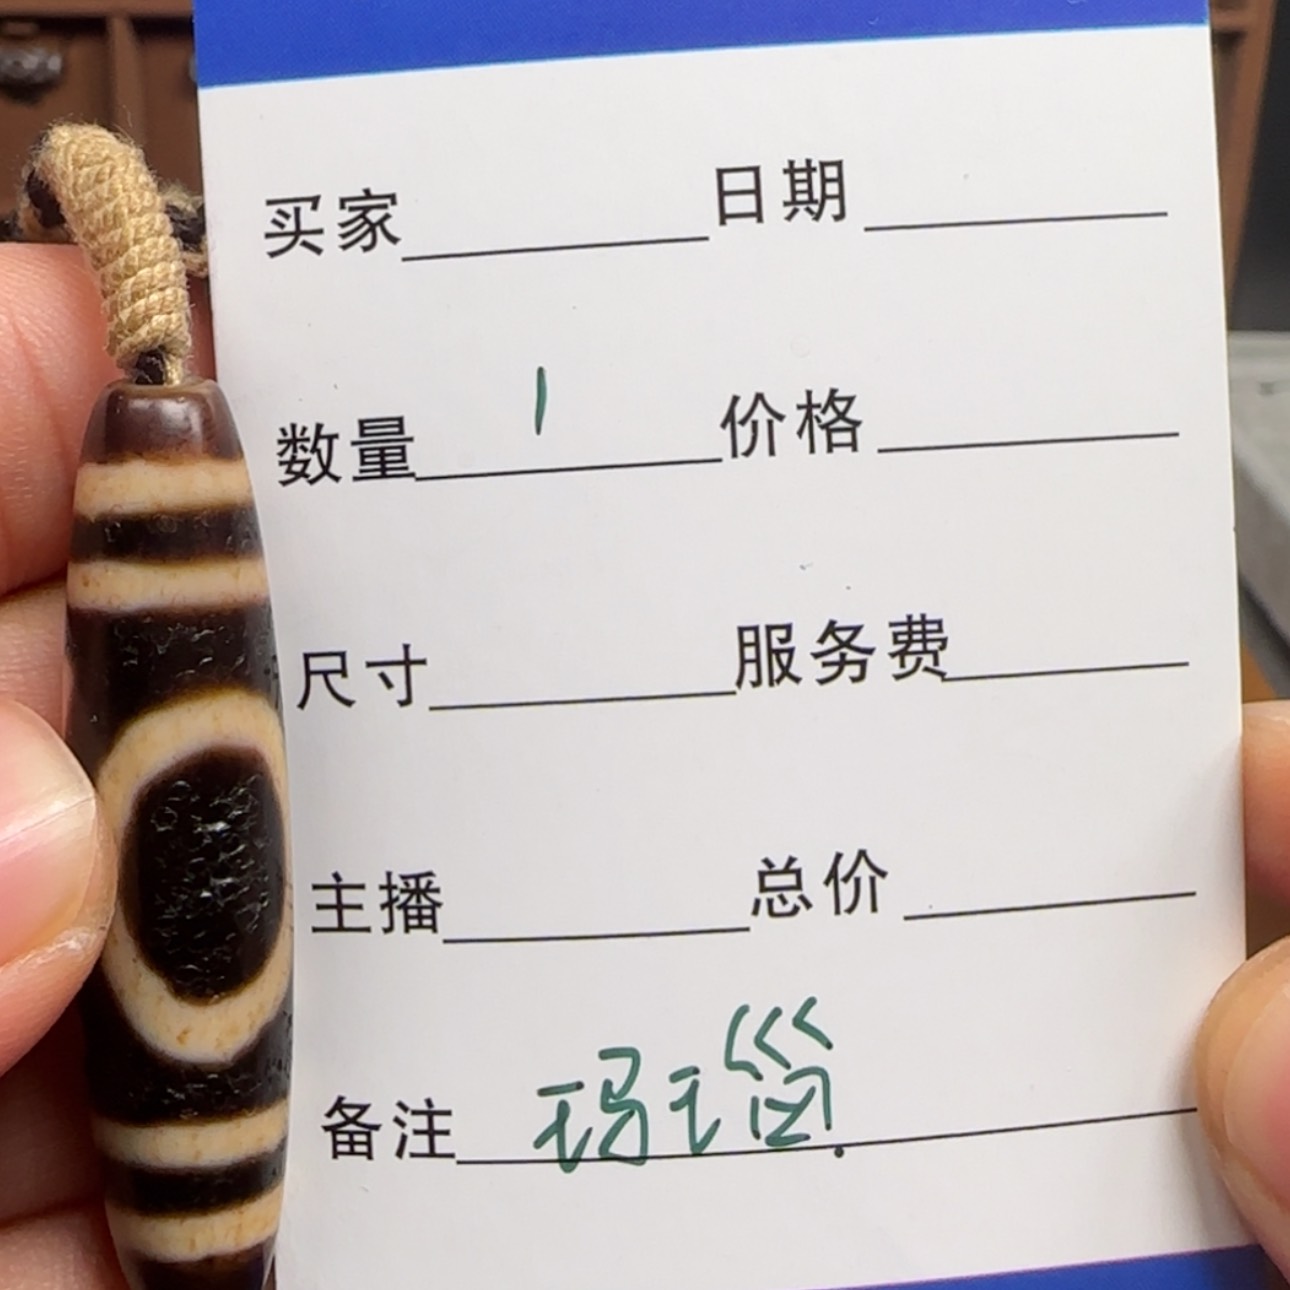 买家 日期
数量 1 价格
尺寸 服务费
主播 总价
备注 玛瑙.